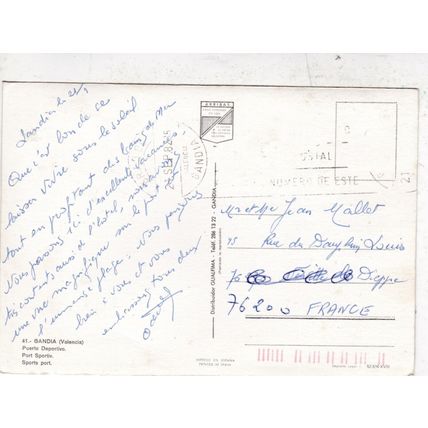 Gandia le 21/9
Que c'est bon de se
laisser vivre sous le soleil
tout en profitant des bains de mer
Nous passons ici d'excellentes vacances,
contents aussi de l'hôtel,
une vue magnifique sur le port et
l'immense plage. Nous pensons
bien à vous et vous
embrassons tous deux
41.- GANDIA (Valencia)
Puerto Deportivo.
Port Sportiv.
Sports port.
Distribuidor GUALFIMA - Teléf. 286 13 22 - GANDIA
SEP 82
VALENCIA
GANDIA
POSTAL
NUMERO DE ESTE
Mr et Mme Jean Mallot
15 Rue du Dauphin Louis
Dieppe
76200 FRANCE